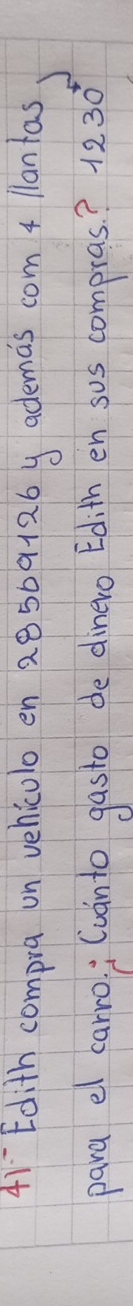 41- Edith compra un vehículo en 28569126 y además com 4 llantas
para el carro. ¿Cuánto gasto de dinero Edith en sus compras.? 1230